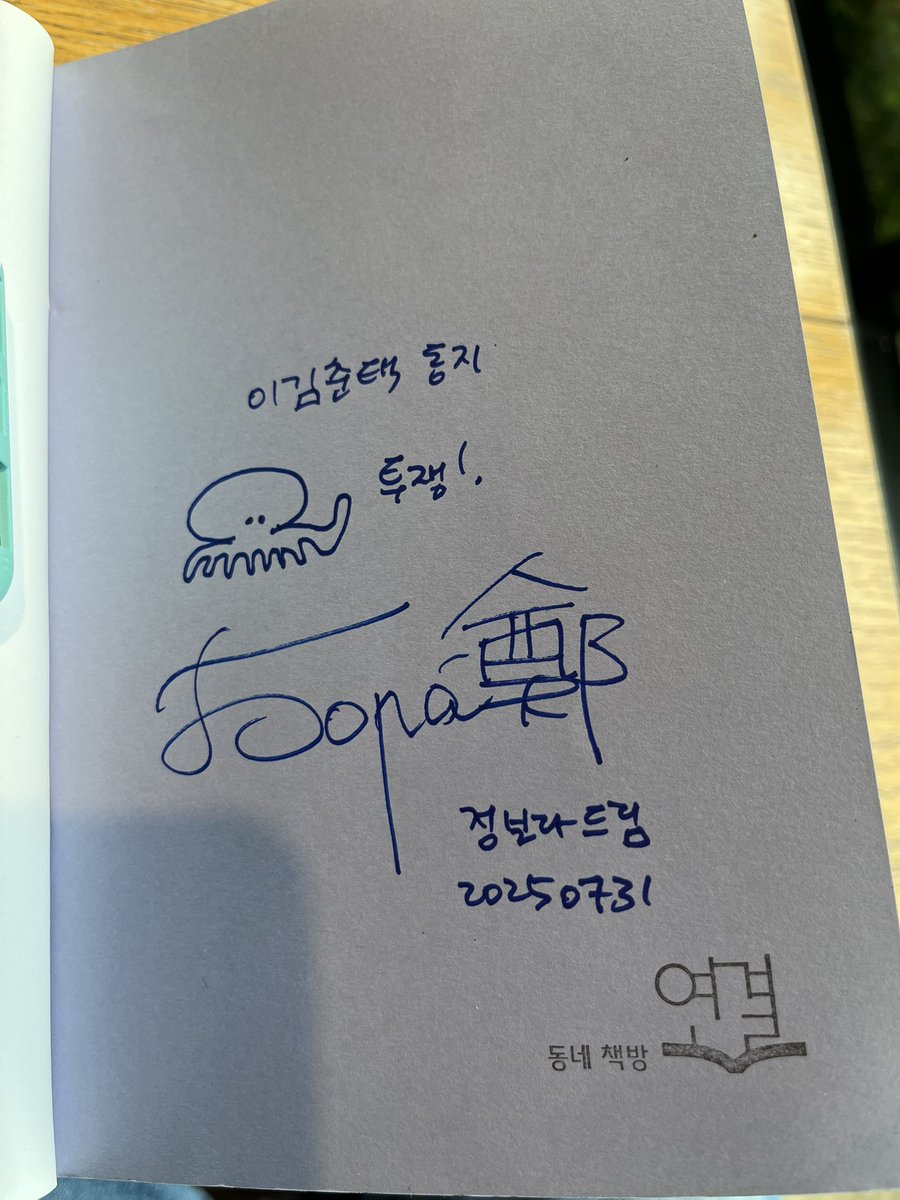 이김춘택 동지
투쟁!.
Бора 鄭
정보라 드림
20250731
연결
동네 책방